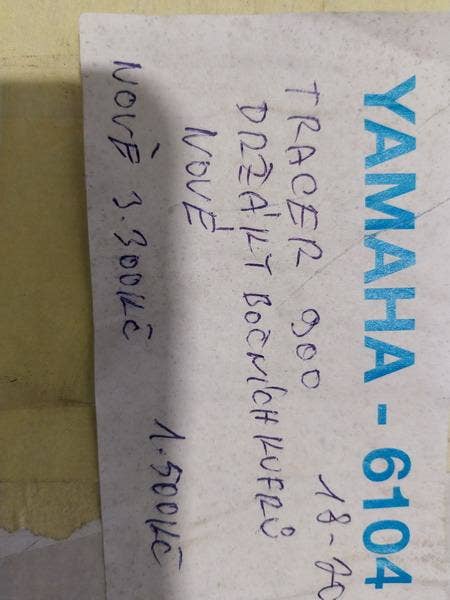 YAMAHA - 6104
TRACER 900 18-20
DRŽÁKY BOČNÍCH KUFRŮ
NOVÉ
NOVĚ 3.300KČ 1.500KČ